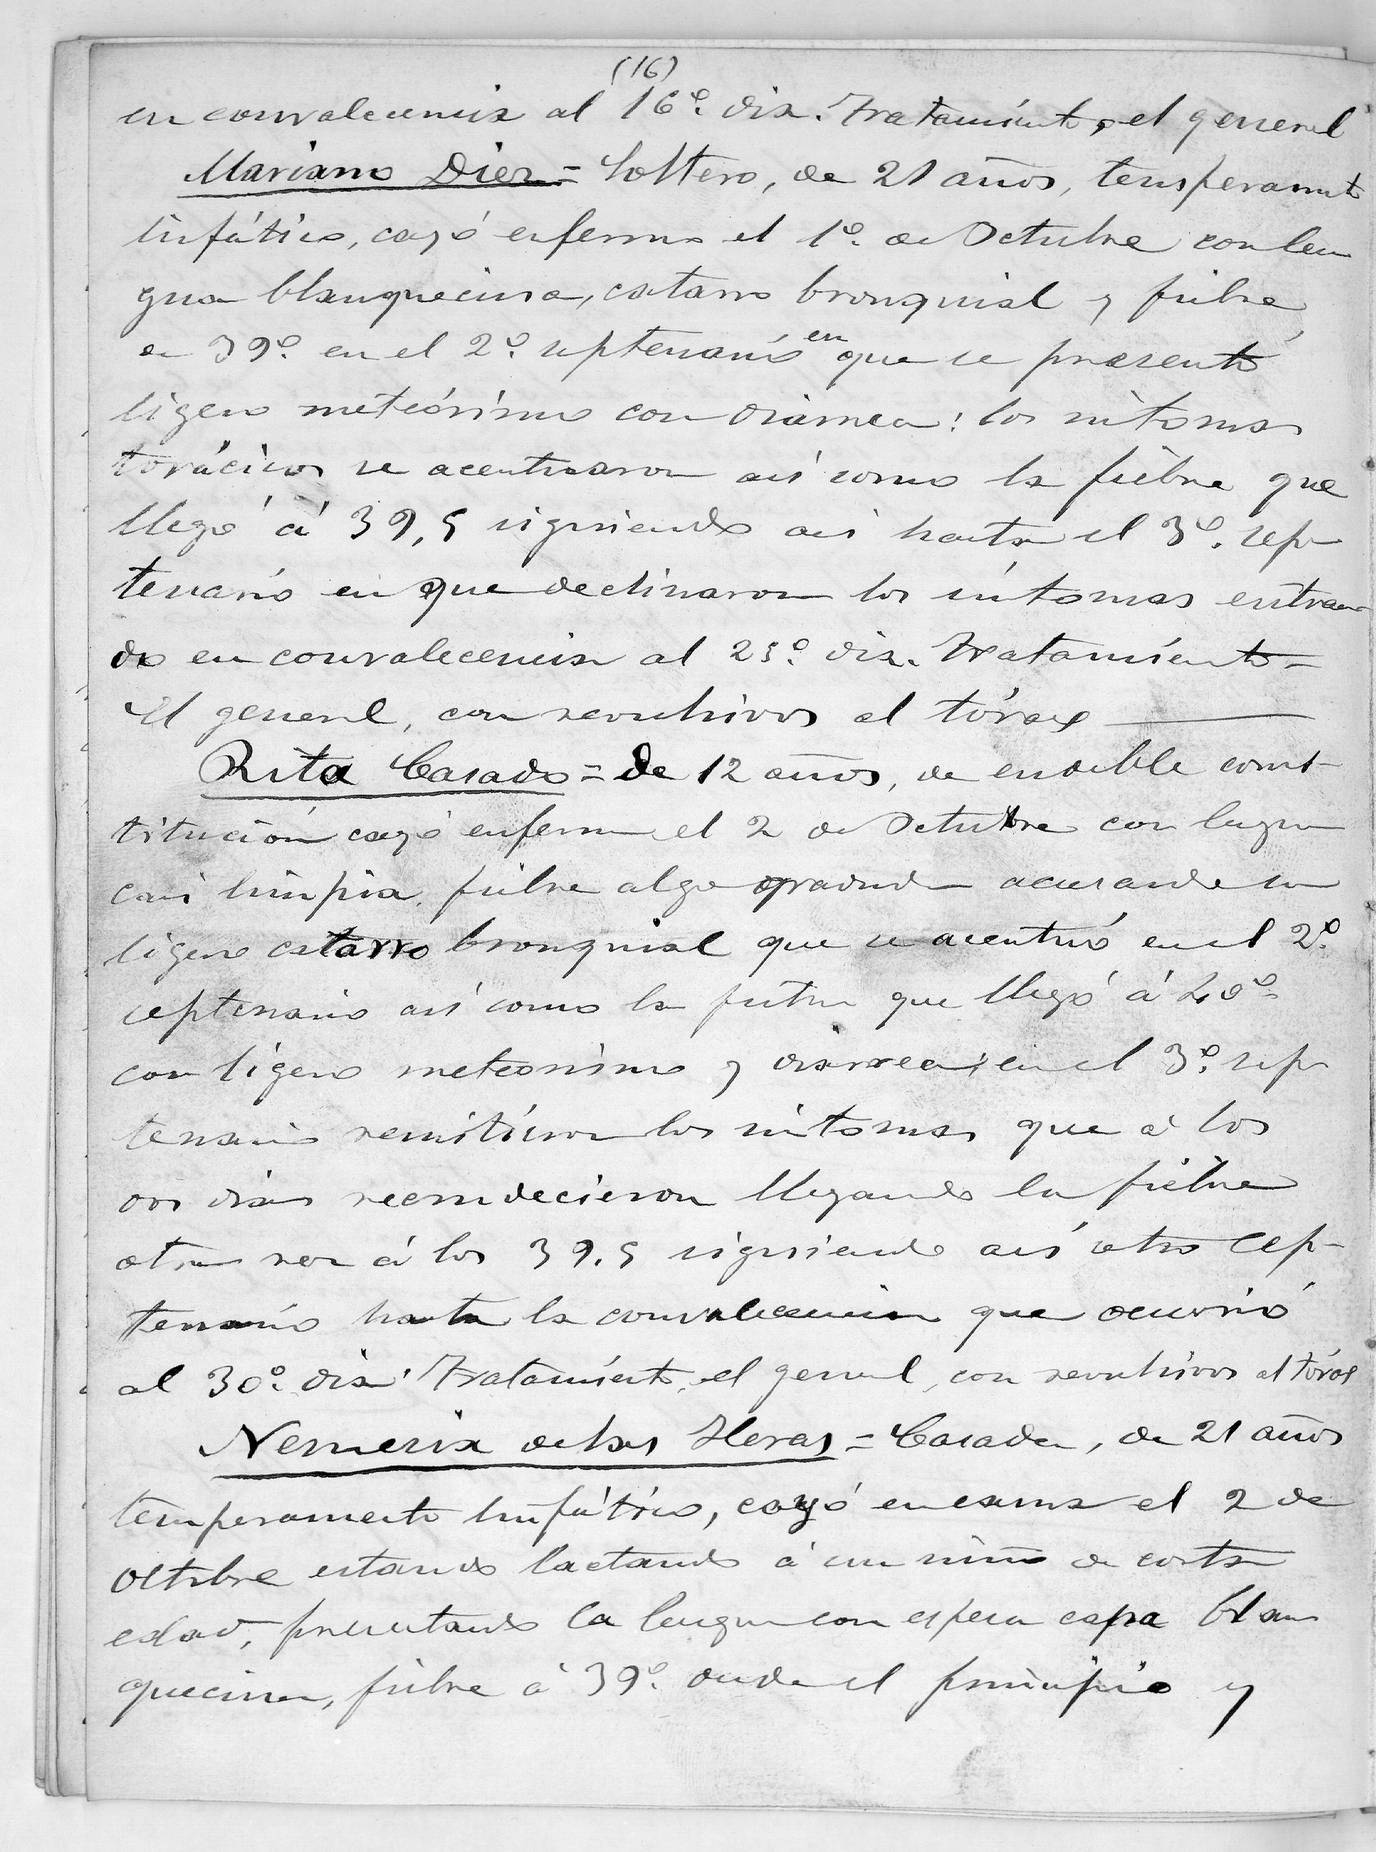 (16)
en convalecencia al 16º. dia. Tratamiento, el general
Mariano Diez = Soltero, de 21 años, temperamto
linfático, cayó enfermo el 1º. de Octubre con len
gua blanquecina, catarro bronquial y fiebre
de 39º. en el 2º. septenario en que se presentó
ligero meteórismo con diarrea: los sintomas
torácicos se acentuaron así como la fiebre que
llegó á 39,5 siguiendo asi hasta el 3º. sep-
tenario en que declinaron los síntomas entran-
do en convalecencia al 25º. dia. Tratamiento =
el general, con revulsivos al tórax
Rita Casado = de 12 años, de endeble cons-
titución cayó enferma el 2 de Octubre con lengua
casi limpia, fiebre algo graduada acusando un
ligero catarro bronquial que se acentuó en el 2º.
septenario así como la fiebre que llegó á 40º.
con ligero meteorismo y diarrea; en el 3º. sep-
tenario remitieron los sintomas que á los
dos dias recrudecieron llegando la fiebre
otra vez á los 39,5 siguiendo así otro sep-
tenario hasta la convalecencia que ocurrió
al 30º. dia. Tratamiento, el general, con revulsivos al tórax
Nemesia de las Heras = Casada, de 21 años
temperamento linfático, cayó en cama el 2 de
Octubre estando lactando á un niño de corta
edad, presentando la lengua con espesa capa blan
quecina, fiebre á 39º. desde el principio y